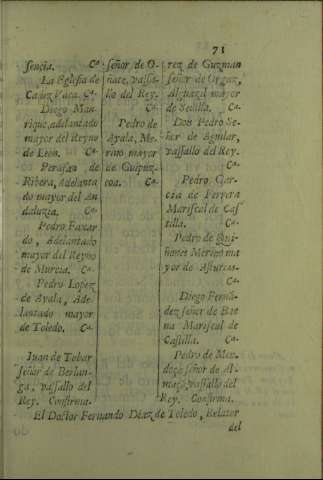 71
sencia. Cª.
La Eglesia de
Cadiz Vaca. Cª.
Diego Man-
rique, adelantado
mayor del Reyno
de Leon. Cª.
Perafan de
Ribera, Adelanta
do mayor del An
daluzia. Cª.
Pedro Faxar
do, Adelantado
mayor del Reyno
de Murcia. Cª.
Pedro Lopez
de Ayala, Ade-
lantado mayor
de Toledo. Cª.
Iuan de Tobar
señor de Berlan-
ga, vassallo del
Rey. Confirma.
señor de O-
ñate, vassa-
llo del Rey.
Pedro de
Ayala, Me-
rino mayor
de Guipuz-
coa. Cª.
rez de Guzman
señor de Orgaz,
Alguazil mayor
de Sevilla. Cª.
Don Pedro Se-
ñor de Aguilar,
vassallo del Rey.
Cª.
Pedro Gar-
cia de Herrera
Mariscal de Cas
tilla. Cª.
Pedro de Qui-
ñones Merino ma
yor de Asturias.
Cª.
Diego Fernā-
dez señor de Bae
na Mariscal de
Castilla. Cª.
Pedro de Men-
doça señor de Al-
maçã, vassallo del
Rey. Confirma.
El Doctor Fernando Diaz de Toledo, Relator
del